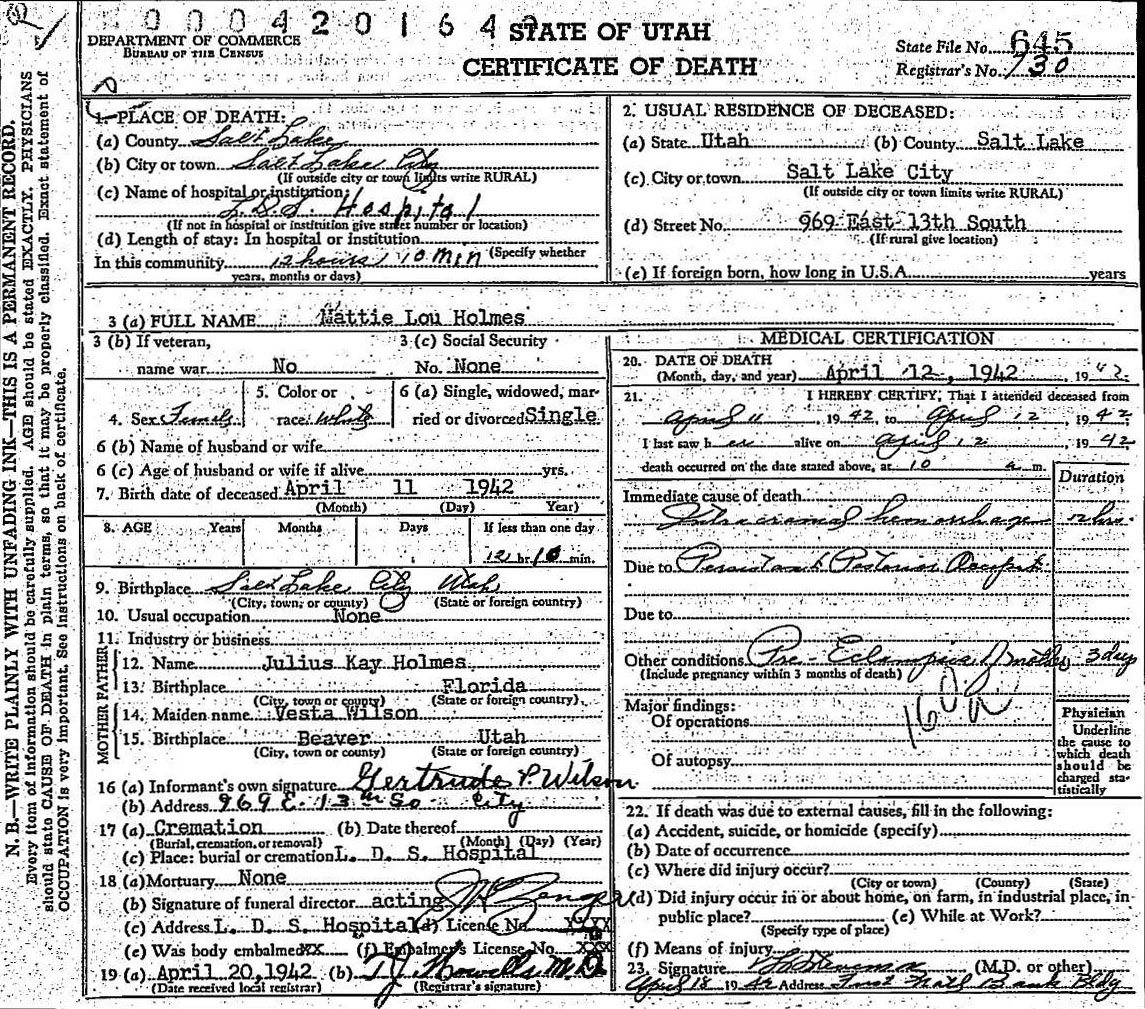 0000420164
STATE OF UTAH
DEPARTMENT OF COMMERCE
BUREAU OF THE CENSUS
CERTIFICATE OF DEATH
State File No. 645
Registrar's No. 730
N. B.—WRITE PLAINLY WITH UNFADING INK—THIS IS A PERMANENT RECORD.
Every item of information should be carefully supplied. AGE should be stated EXACTLY. PHYSICIANS
should state CAUSE OF DEATH in plain terms, so that it may be properly classified. Exact statement of
OCCUPATION is very important. See instructions on back of certificate.
1. PLACE OF DEATH:
(a) County Salt Lake
(b) City or town Salt Lake City
(If outside city or town limits write RURAL)
(c) Name of hospital or institution:
L.D.S. Hospital
(If not in hospital or institution give street number or location)
(d) Length of stay: In hospital or institution
In this community 12 hours, 10 min (Specify whether
years, months or days)
2. USUAL RESIDENCE OF DECEASED:
(a) State Utah (b) County Salt Lake
(c) City or town Salt Lake City
(If outside city or town limits write RURAL)
(d) Street No. 969 East 13th South
(If rural give location)
(e) If foreign born, how long in U.S.A. years
3 (a) FULL NAME Mattie Lou Holmes
3 (b) If veteran, 3 (c) Social Security
name war No No. None
4. Sex Female 5. Color or race White 6 (a) Single, widowed, mar-
ried or divorced Single
6 (b) Name of husband or wife
6 (c) Age of husband or wife if alive yrs.
7. Birth date of deceased April 11 1942
(Month) (Day) Year)
8. AGE Years Months Days If less than one day
12 hr. 10 min.
9. Birthplace Salt Lake City Utah
(City, town, or county) (State or foreign country)
10. Usual occupation None
11. Industry or business
FATHER
12. Name Julius Kay Holmes
13. Birthplace Florida
(City, town or county) (State or foreign country)
MOTHER
14. Maiden name Vesta Wilson
15. Birthplace Beaver Utah
(City, town or county) (State or foreign country)
16 (a) Informant's own signature Gertrude P. Wilson
(b) Address 969 E. 13th So City
17 (a) Cremation (b) Date thereof
(Burial, cremation, or removal) (Month) (Day) (Year)
(c) Place: burial or cremation L. D. S. Hospital
18 (a) Mortuary None
(b) Signature of funeral director acting
(c) Address L. D. S. Hospital (d) License No. XXXX
(e) Was body embalmed XX (f) Embalmer's License No. XXX
19 (a) April 20, 1942 (b) T J Howells M.D.
(Date received local registrar) (Registrar's signature)
MEDICAL CERTIFICATION
20. DATE OF DEATH
(Month, day, and year) April 12, 1942, 1942
21. I HEREBY CERTIFY, That I attended deceased from
April 11, 1942, to April 12, 1942
I last saw her alive on April 12 1942
death occurred on the date stated above, at 10 a m.
Duration
Immediate cause of death
Intracranial hemorrhage 12 hrs.
Due to Persistant Posterior Occiput
Due to
Other conditions Pre-Eclampsia of mother 3 days
(Include pregnancy within 3 months of death)
160a
Major findings:
Of operations
Of autopsy
Physician
Underline
the cause to
which death
should be
charged sta-
tistically
22. If death was due to external causes, fill in the following:
(a) Accident, suicide, or homicide (specify)
(b) Date of occurrence
(c) Where did injury occur?
(City or town) (County) (State)
(d) Did injury occur in or about home, on farm, in industrial place, in-
public place? (e) While at Work?
(Specify type of place)
(f) Means of injury
23. Signature (M.D. or other)
April 18 1942 Address First Natl Bank Bldg